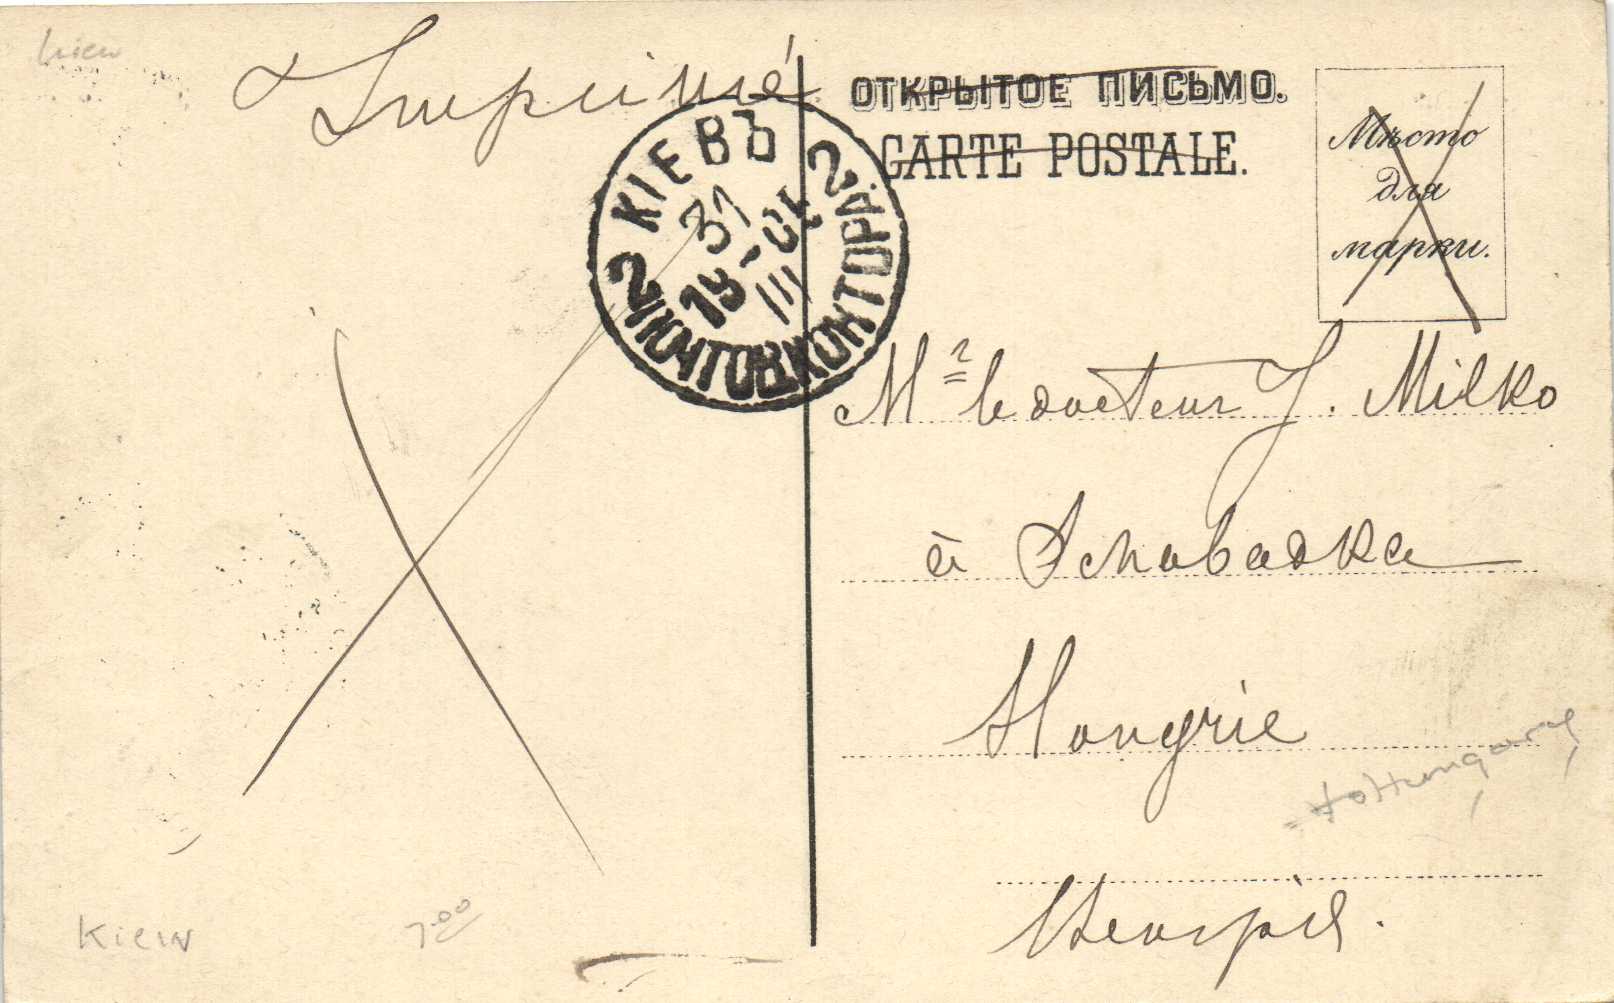 Kiew
Imprimé
ОТКРЫТОЕ ПИСЬМО.
CARTE POSTALE.
Мѣсто
для
марки.
КІЕВЪ
2 2
31
19-05
III
ПОЧТОВ. КОНТОРА.
Mr le docteur J. Milko
à Schabadka
Hongrie
to Hungary
Венгрія.
Kiew
7.00